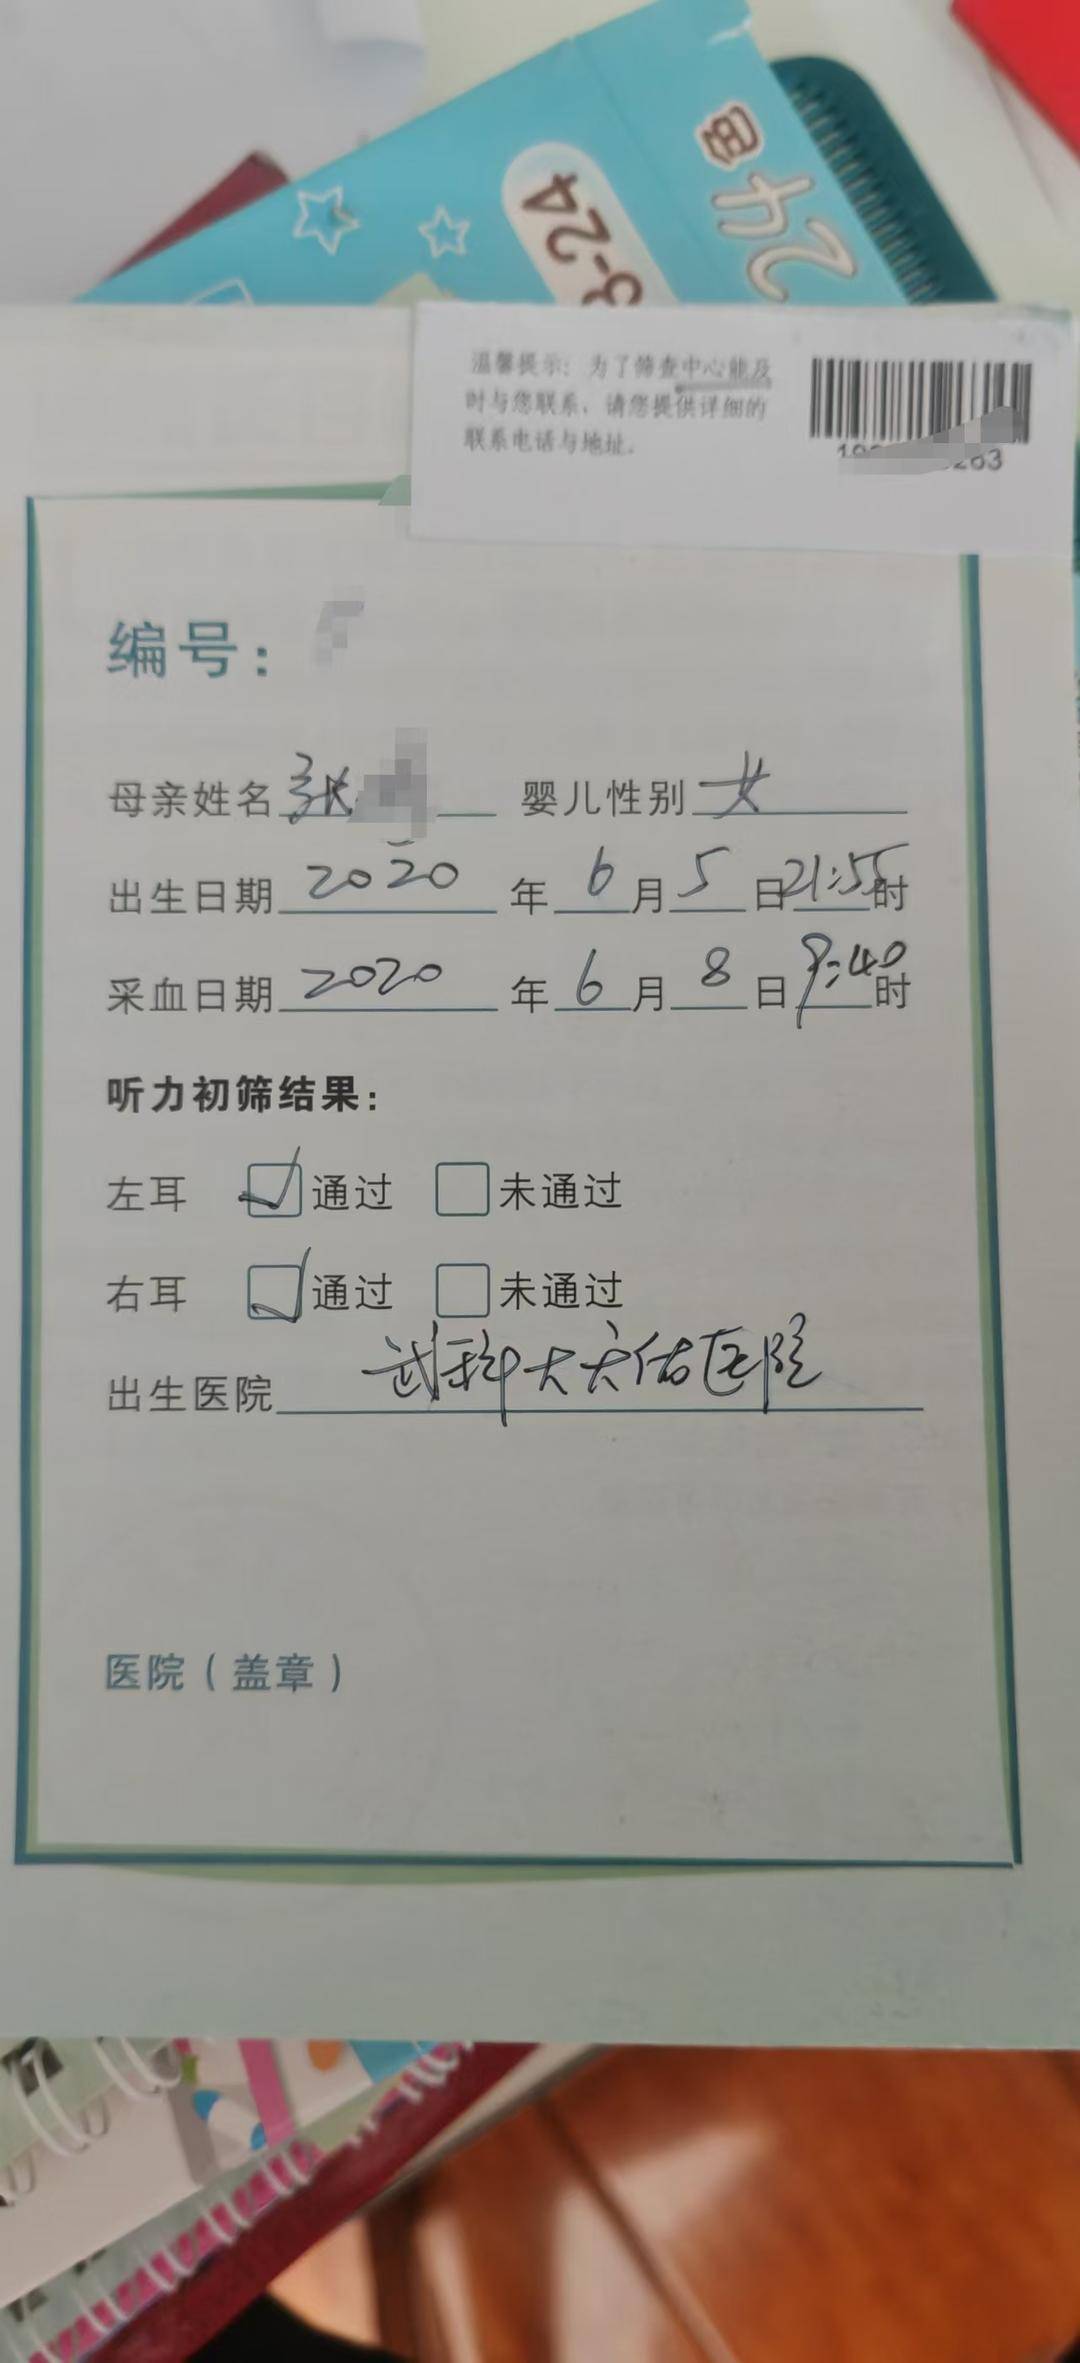 24
3-24
温馨提示：为了筛查中心能及
时与您联系，请您提供详细的
联系电话与地址.
263
编号：
母亲姓名 张 婴儿性别 女
出生日期 2020 年 6 月 5 日 21:55 时
采血日期 2020 年 6 月 8 日 9:40 时
听力初筛结果：
左耳 ☑通过 □未通过
右耳 ☑通过 □未通过
出生医院 武科大天佑医院
医院（盖章）